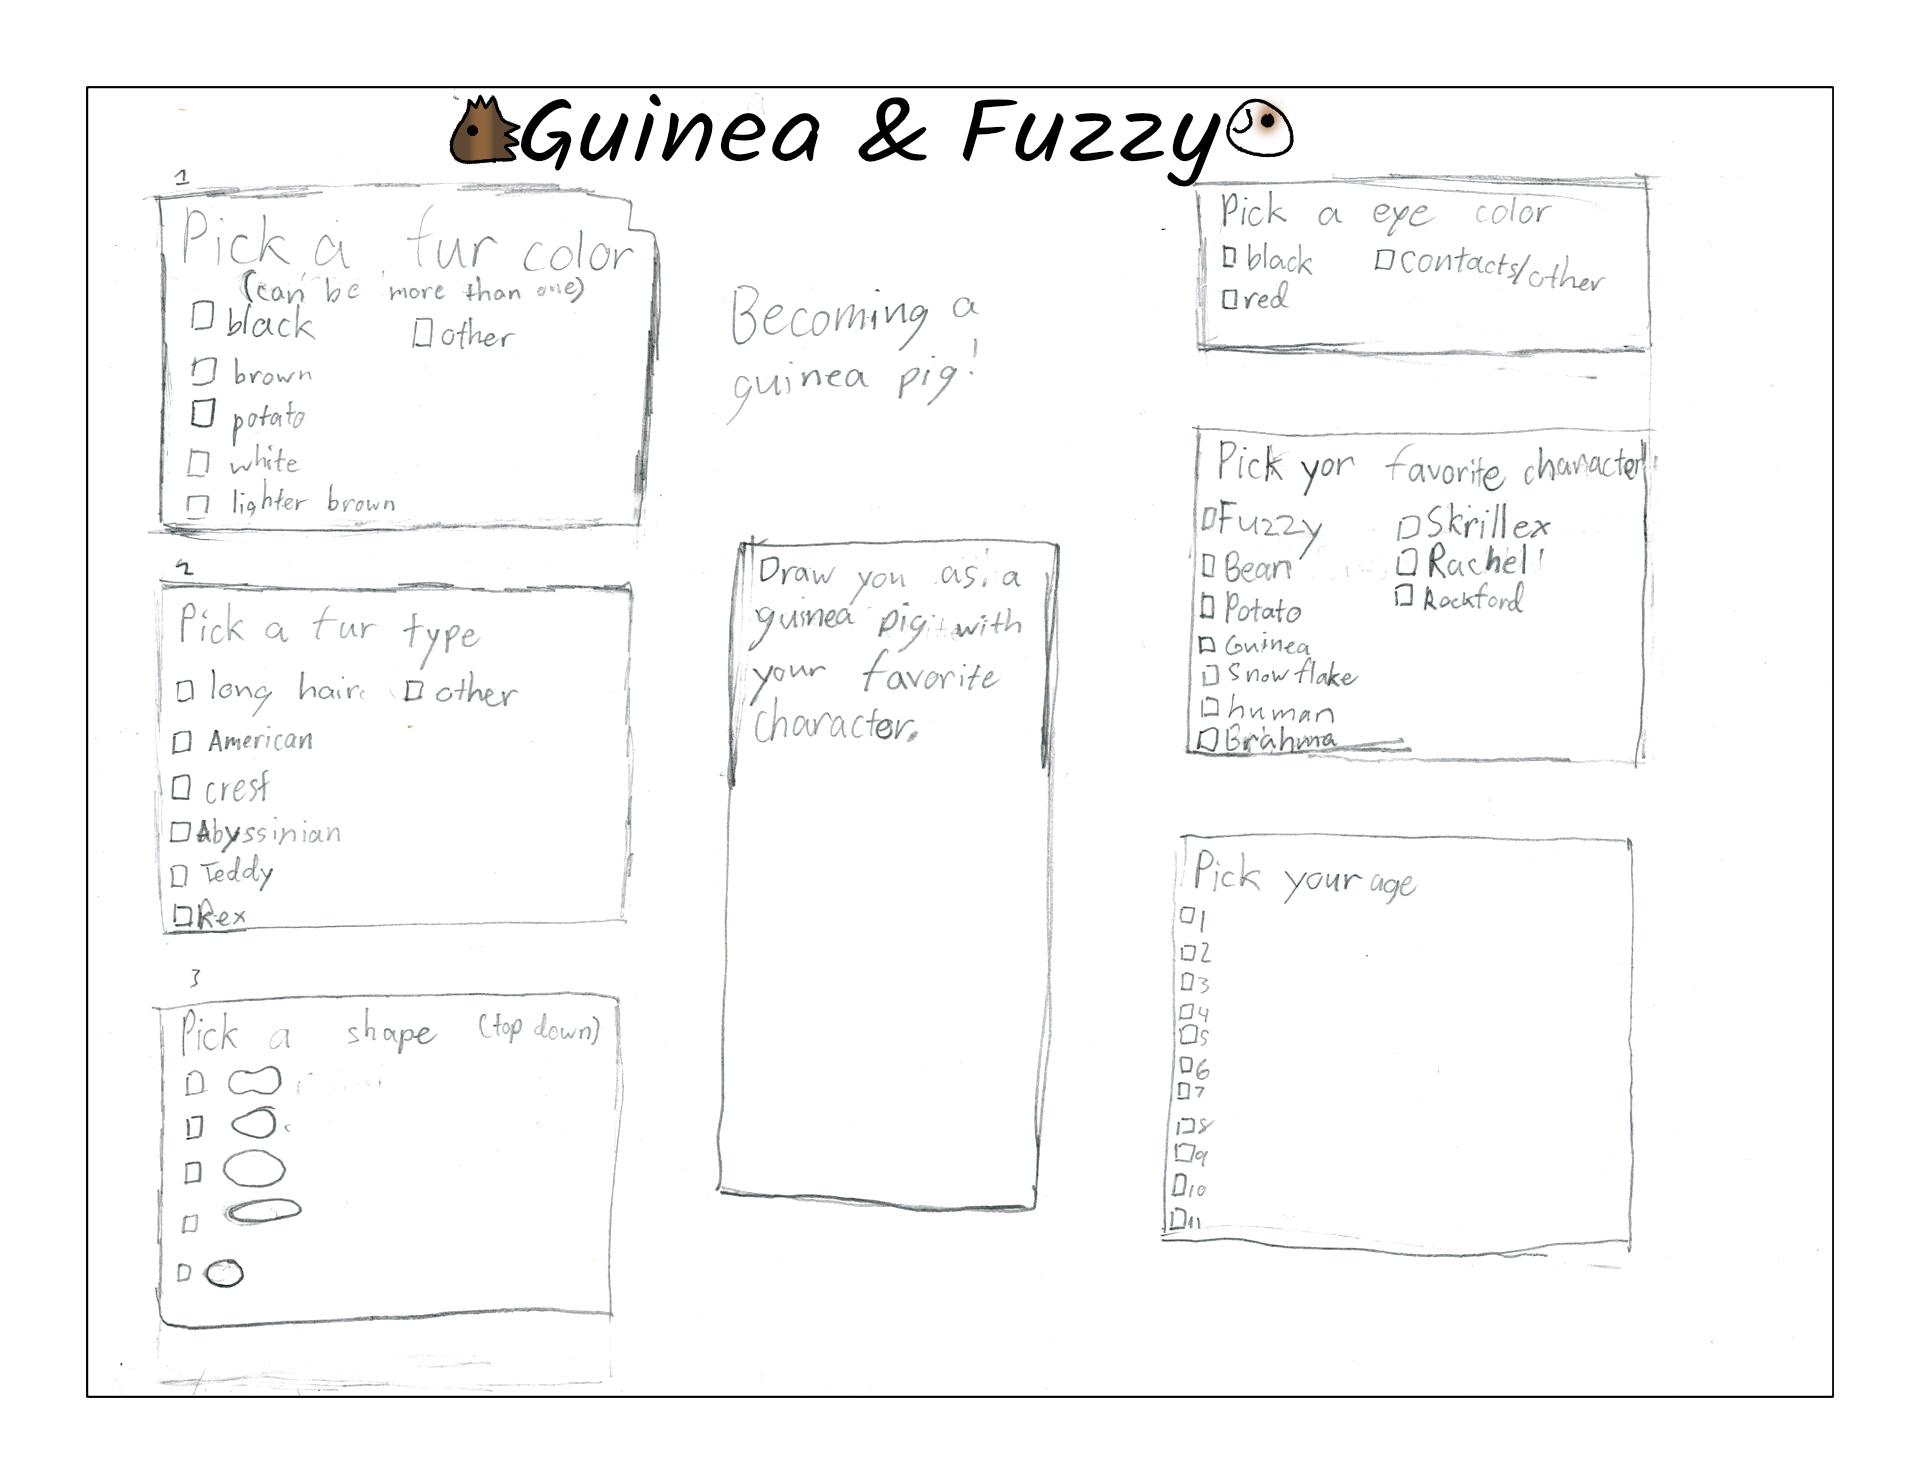 Guinea & Fuzzy
1
Pick a fur color
(can be more than one)
black
other
brown
potato
white
lighter brown
2
Pick a fur type
long hair
other
American
crest
Abyssinian
Teddy
Rex
3
Pick a shape (top down)
Becoming a
guinea pig!
Draw you as a
guinea pig with
your favorite
character.
Pick a eye color
black
contacts/other
red
Pick yor favorite character
Fuzzy
Skrillex
Bean
Rachel
Potato
Rockford
Guinea
Snowflake
human
Brahma
Pick your age
1
2
3
4
5
6
7
8
9
10
11